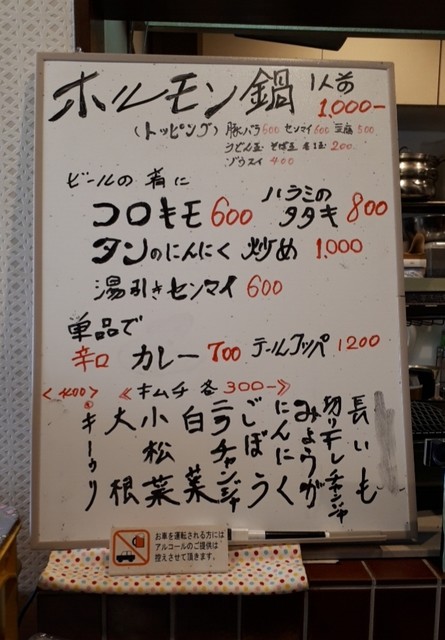 ホルモン鍋 1人前 1,000-
(トッピング) 豚バラ600 センマイ600 豆腐500
うどん玉 そば玉 200
ゾウスイ 400
ビールの肴に
コロキモ 600 ハラミのタタキ 800
タンのにんにく炒め 1,000
湯引きセンマイ 600
単品で
辛口カレー 700 テールクッパ 1200
<400> ≪キムチ 各300-≫
長いも
切り干しチャンジャ
みょうが
にんにく
ごぼう
ニラチャンジャ
白菜
小松菜
大根
キーゥリ
お車を運転される方には
アルコールのご提供は
控えさせて頂きます。